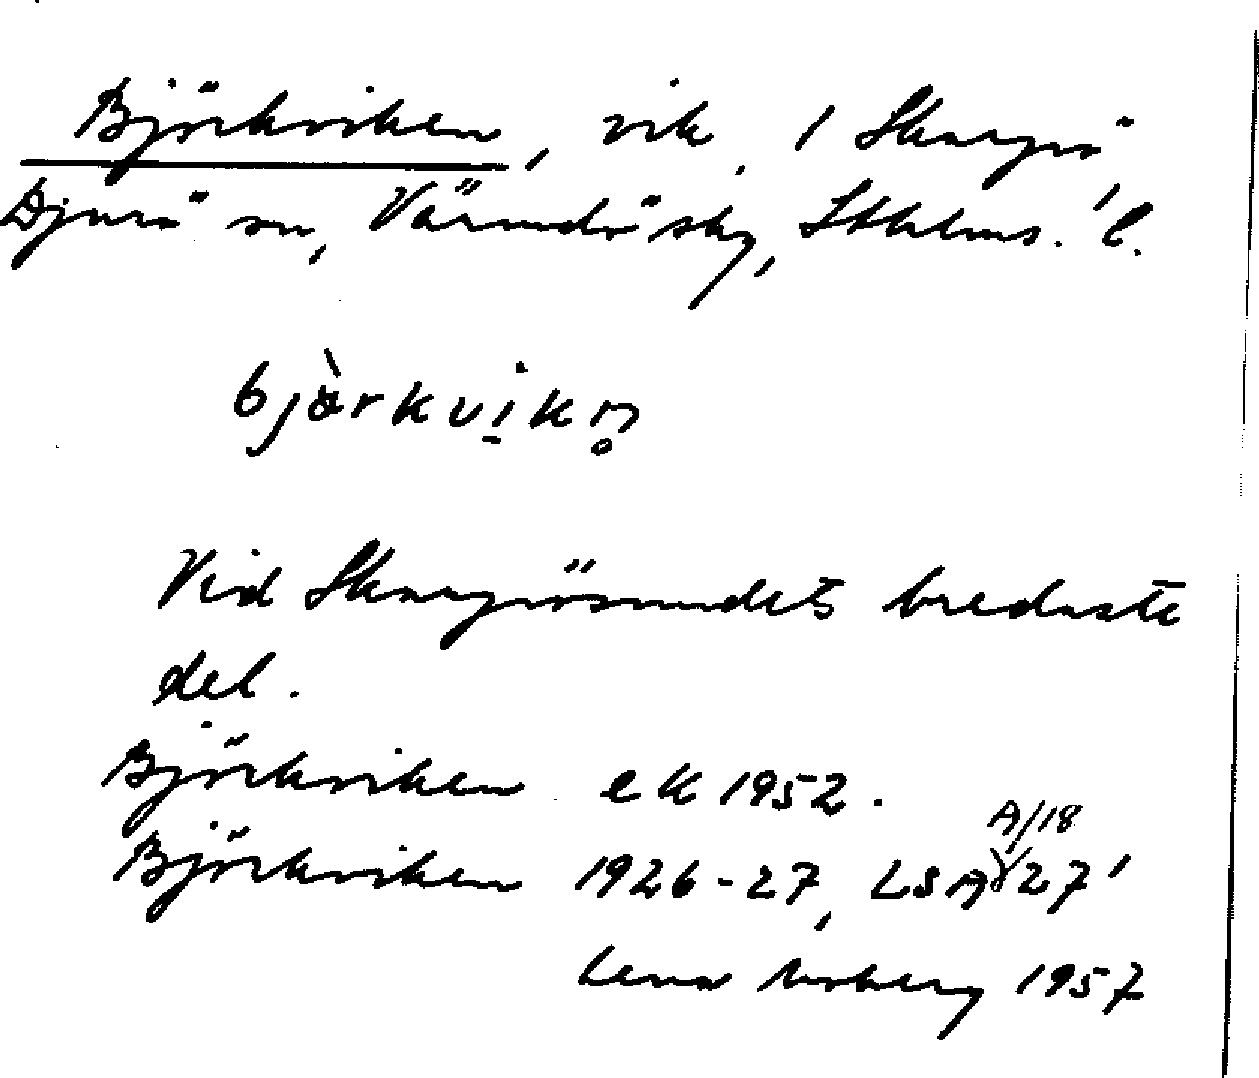 Björkviken, vik, 1 Skarprö
Djurö sn, Värmdö skg, Sthlms. l.
bjàrkvi̱kn̥
Vid Skarprösundets bredaste
del.
Björkviken ek 1952.
Björkviken 1926-27, LSA 27'
A/18
Lena Moberg 1957